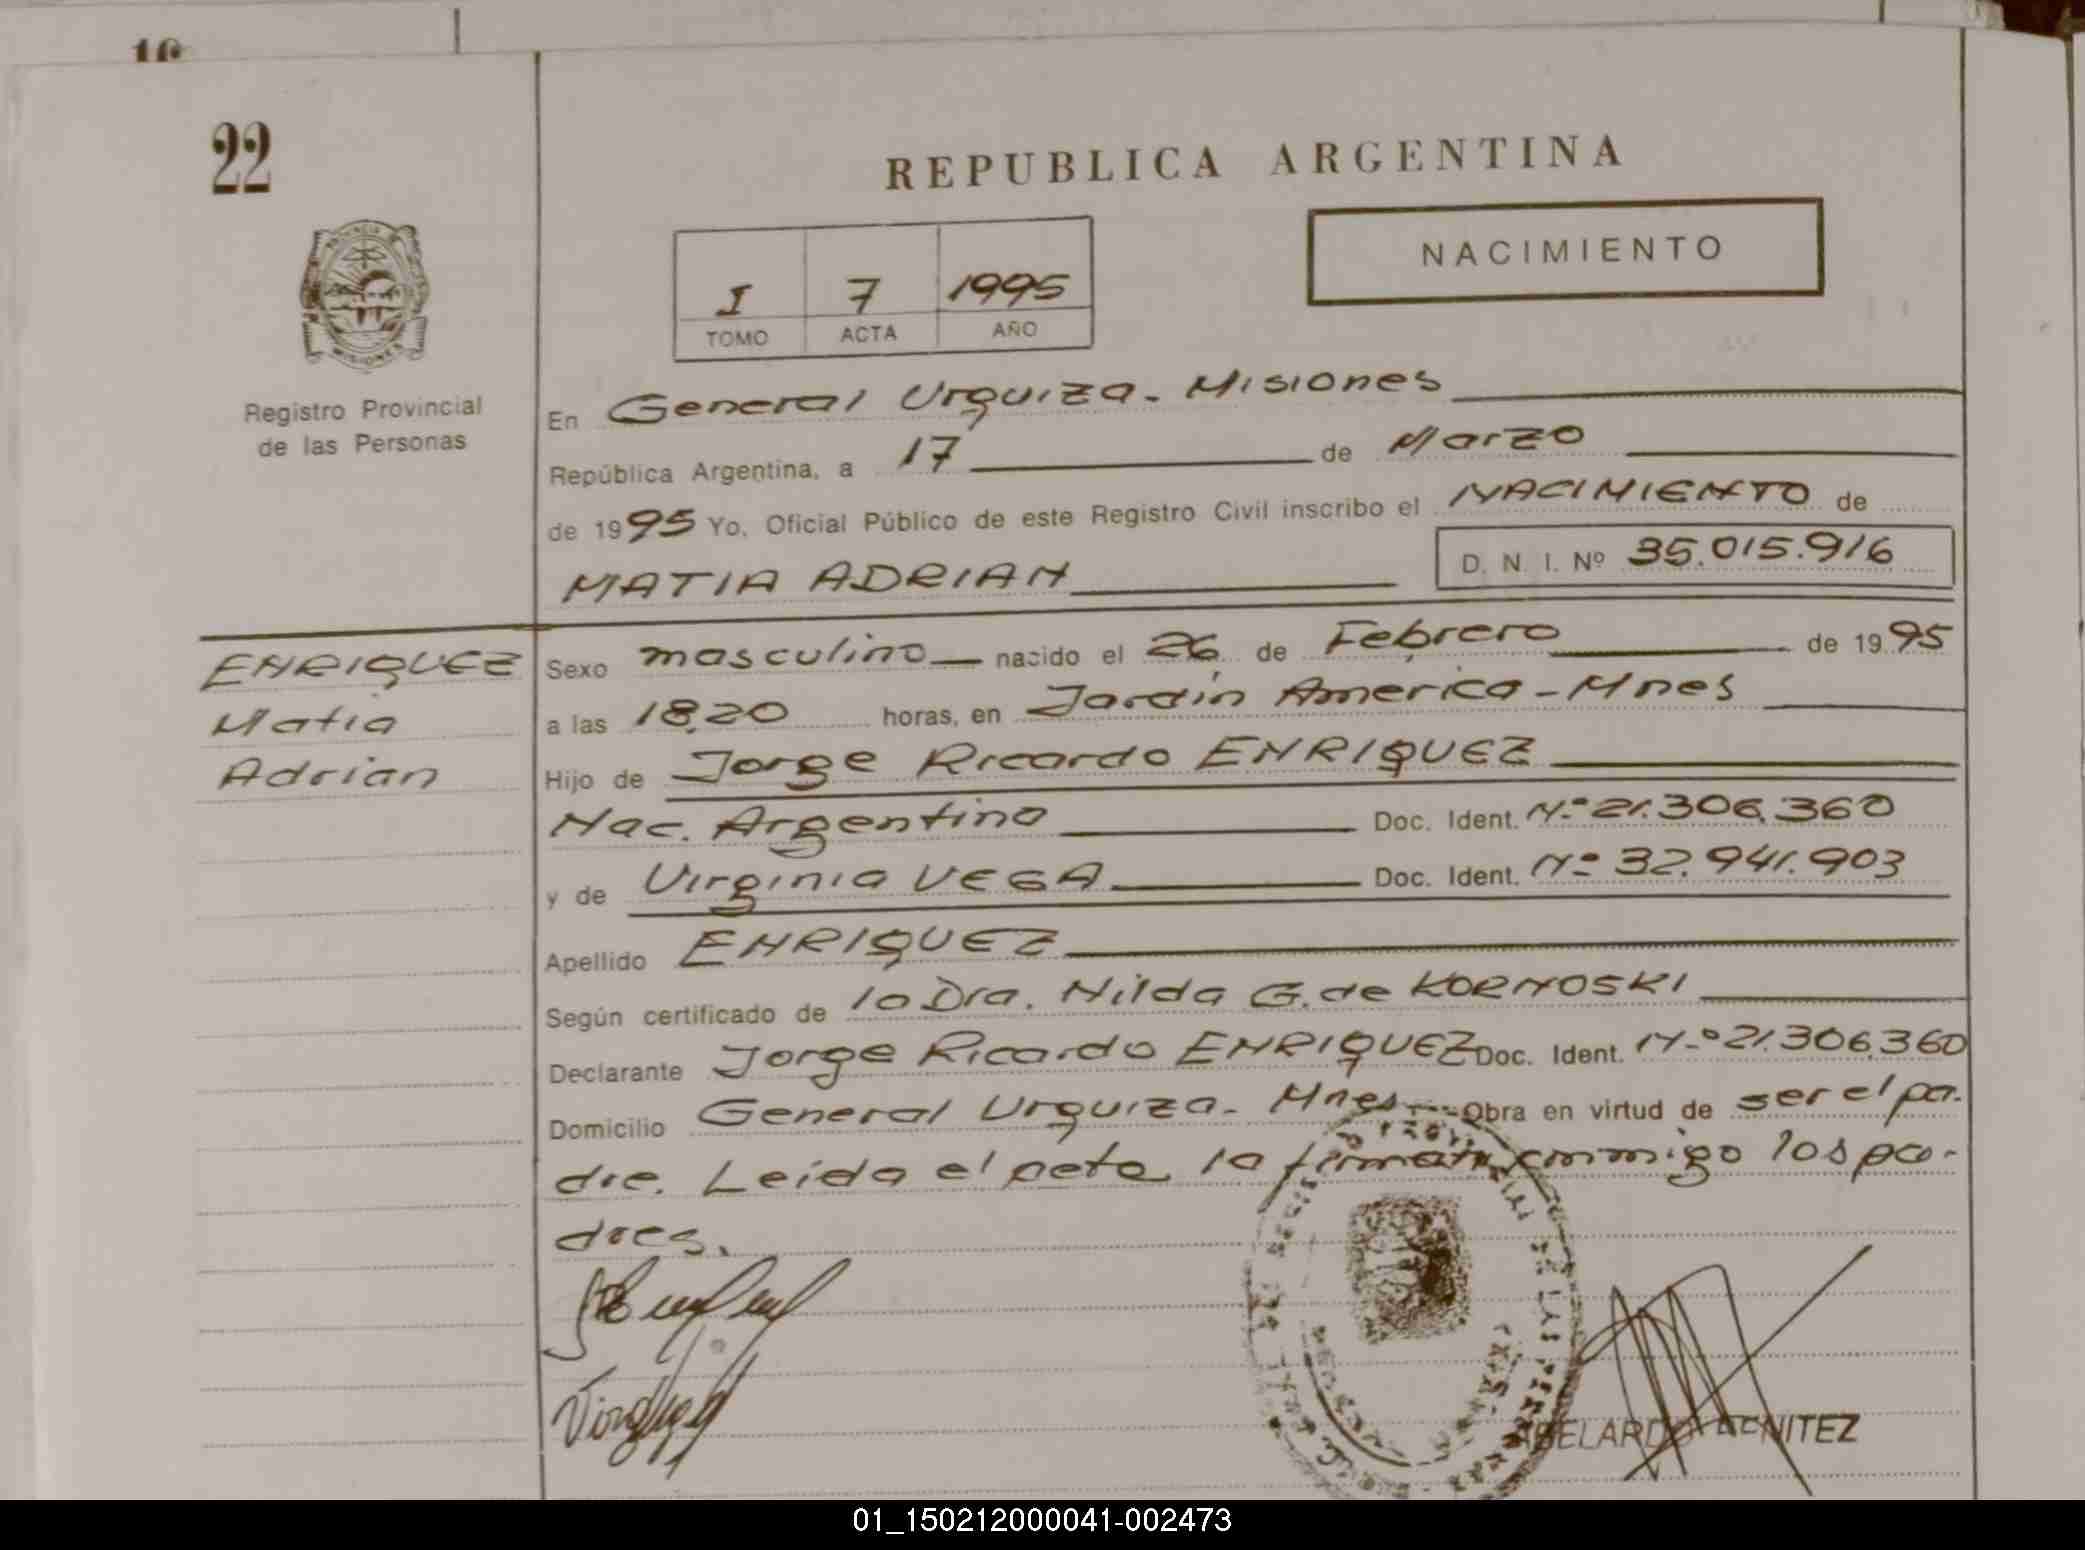 16
22
REPUBLICA ARGENTINA
NACIMIENTO
I 7 1995
TOMO ACTA AÑO
PROVINCIA DE
MISIONES
Registro Provincial
de las Personas
En General Urquiza - Misiones
República Argentina, a 17 de Marzo
de 1995 Yo, Oficial Público de este Registro Civil inscribo el NACIMIENTO de
MATIA ADRIAN D. N. I. Nº 35.015.916
ENRIQUEZ
Matia
Adrian
Sexo masculino nacido el 26 de Febrero de 1995
a las 18,20 horas, en Jardín America - Mnes
Hijo de Jorge Ricardo ENRIQUEZ
Nac. Argentino Doc. Ident. N.º 21.306.360
y de Virginia VEGA Doc. Ident. Nº 32.941.903
Apellido ENRIQUEZ
Según certificado de la Dra. Nilda G. de KORNOSKI
Declarante Jorge Ricardo ENRIQUEZ Doc. Ident. N.º 21.306.360
Domicilio General Urquiza - Mnes Obra en virtud de ser el pa-
dre. Leida el acta la firman conmigo los pa-
dres.
ABELARDO BENITEZ
01_150212000041-002473